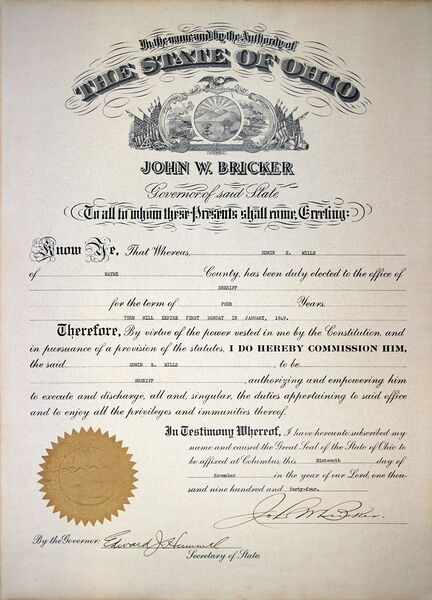 In the name and by the Authority of
THE STATE OF OHIO
JOHN W. BRICKER
Governor of said State
To all to whom these Presents shall come, Greeting:
Know Ye, That Whereas, EDWIN E. MILLS
of WAYNE County, has been duly elected to the office of
SHERIFF
for the term of FOUR Years.
TERM WILL EXPIRE FIRST MONDAY IN JANUARY, 1949.
Therefore, By virtue of the power vested in me by the Constitution, and
in pursuance of a provision of the statutes, I DO HEREBY COMMISSION HIM,
the said EDWIN E. MILLS , to be
SHERIFF , authorizing and empowering him
to execute and discharge, all and, singular, the duties appertaining to said office
and to enjoy all the privileges and immunities thereof.
In Testimony Whereof, I have hereunto subscribed my
name and caused the Great Seal of the State of Ohio to
be affixed at Columbus, this Sixteenth day of
November in the year of our Lord, one thou
sand nine hundred and forty-four.
John W. Bricker
By the Governor: Edward J. Hummel
Secretary of State.